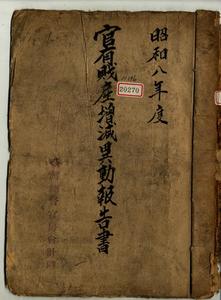 昭和八年度
官有財産増減異動報告書
20270